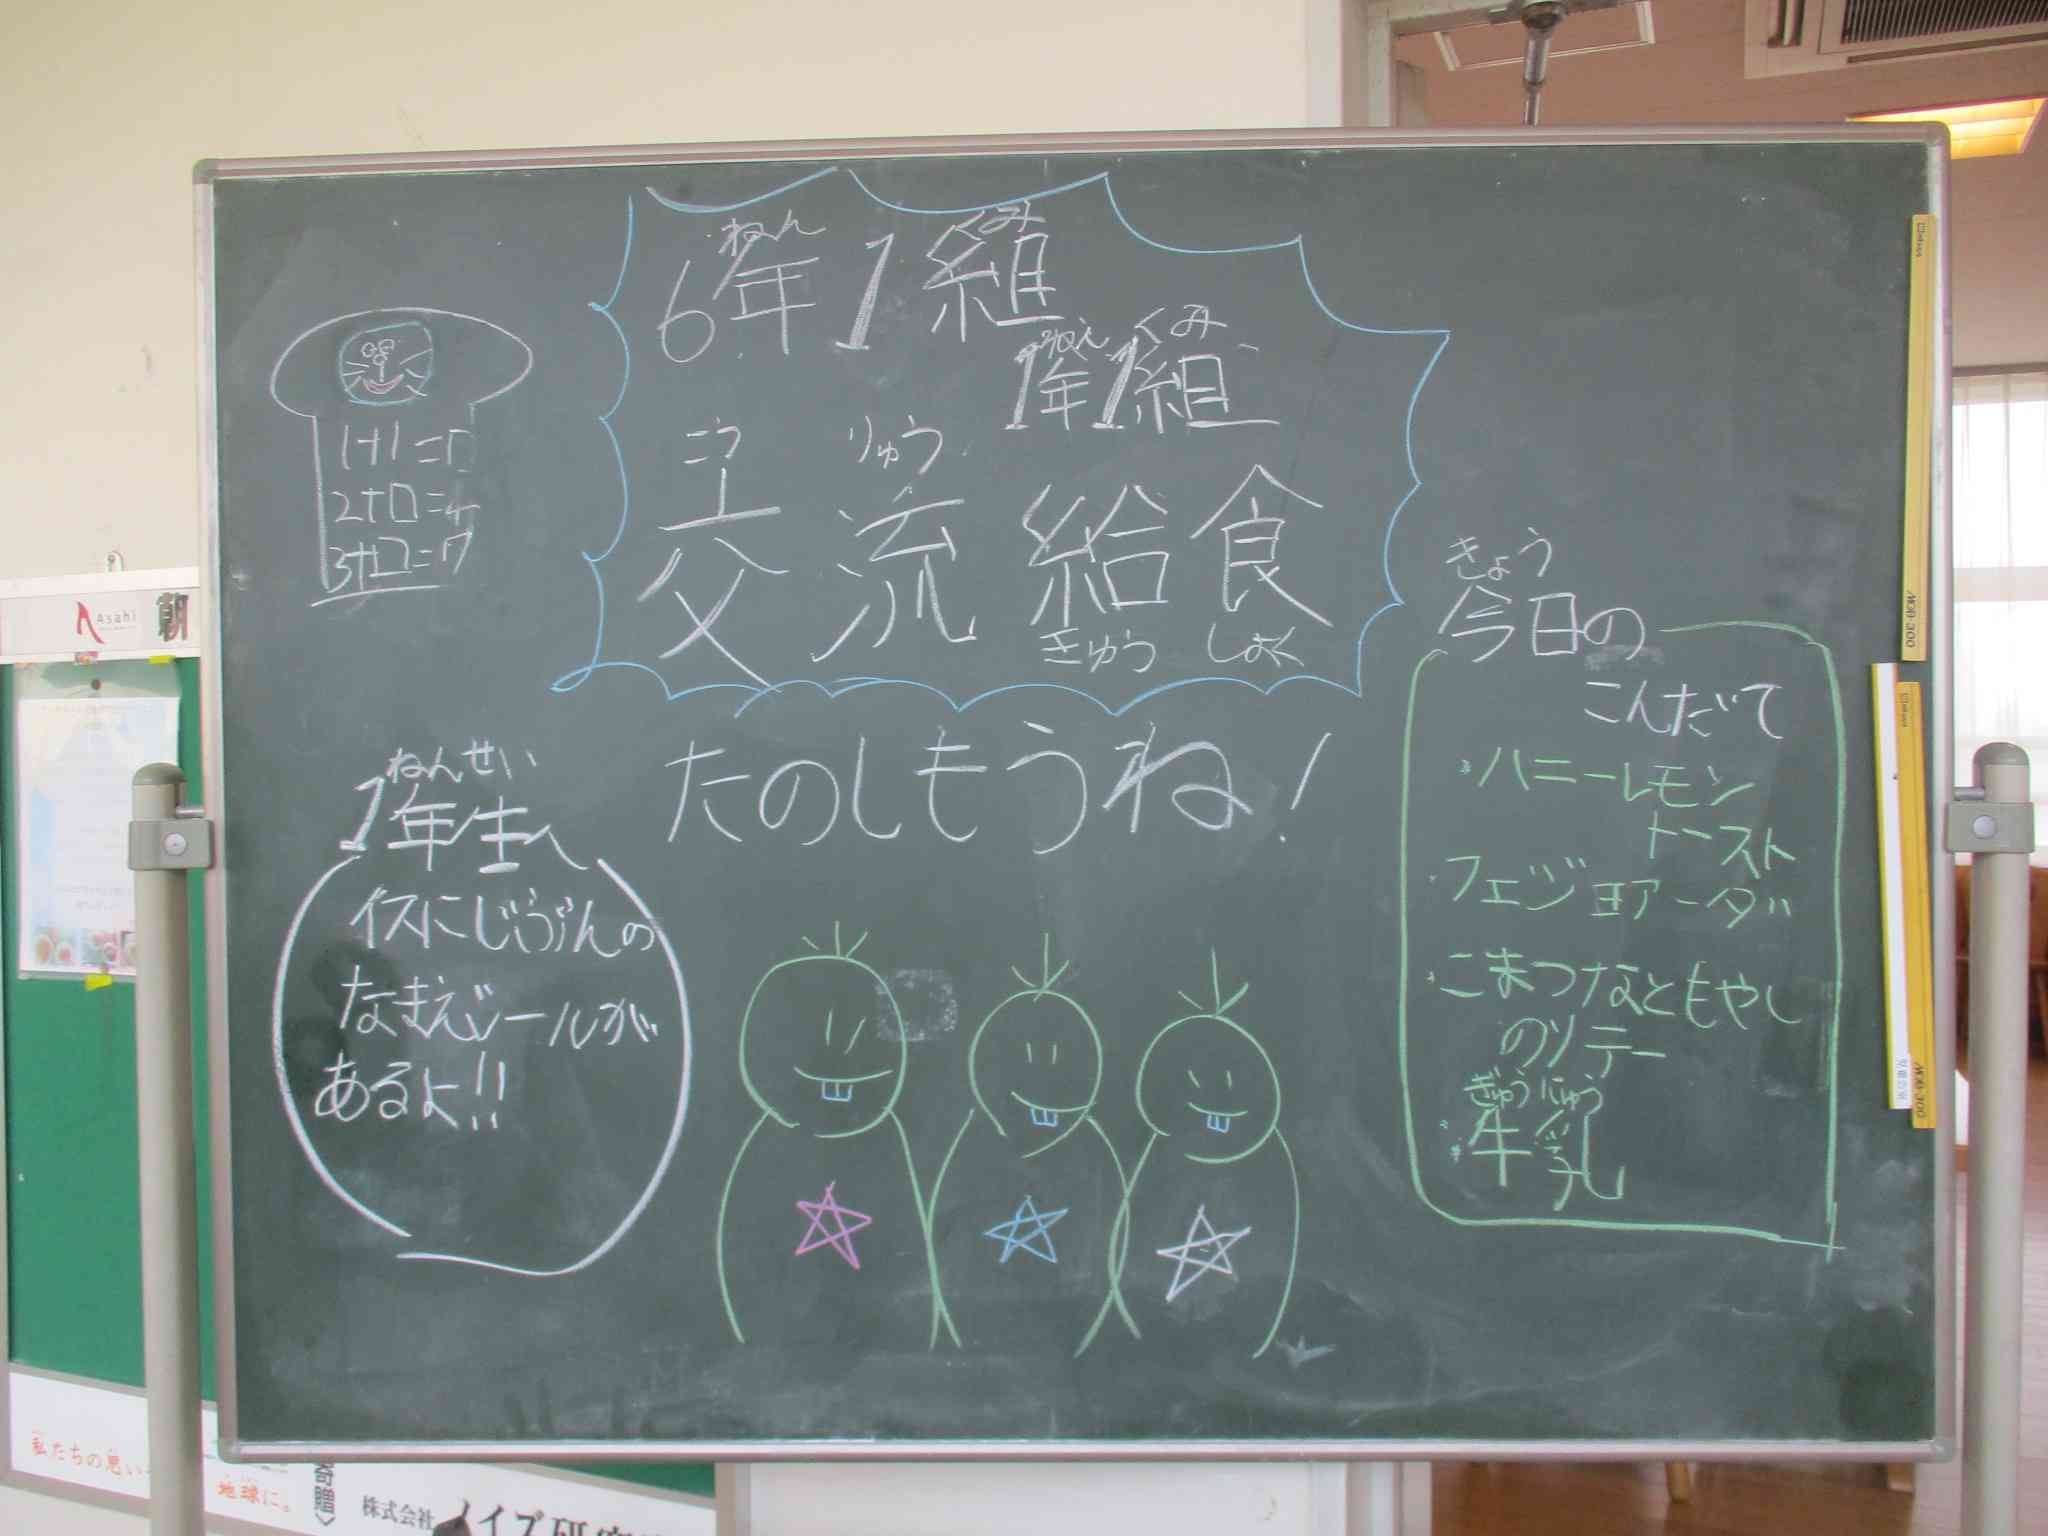 ねん くみ
6年1組
ねん くみ
1年1組
こう りゅう
交流給食
きゅう しょく
たのしもうね!
1+1=□
2+□=4
3+□=7
ねんせい
1年生へ
イスにじぶんの
なまえシールが
あるよ!!
きょう
今日の
こんだて
・ハニーレモン
トースト
・フェジョアーダ
・こまつなともやし
のソテー
ぎゅうにゅう
・牛乳
Asahi
朝
私たちの思い
地球に。
寄贈
株式会社